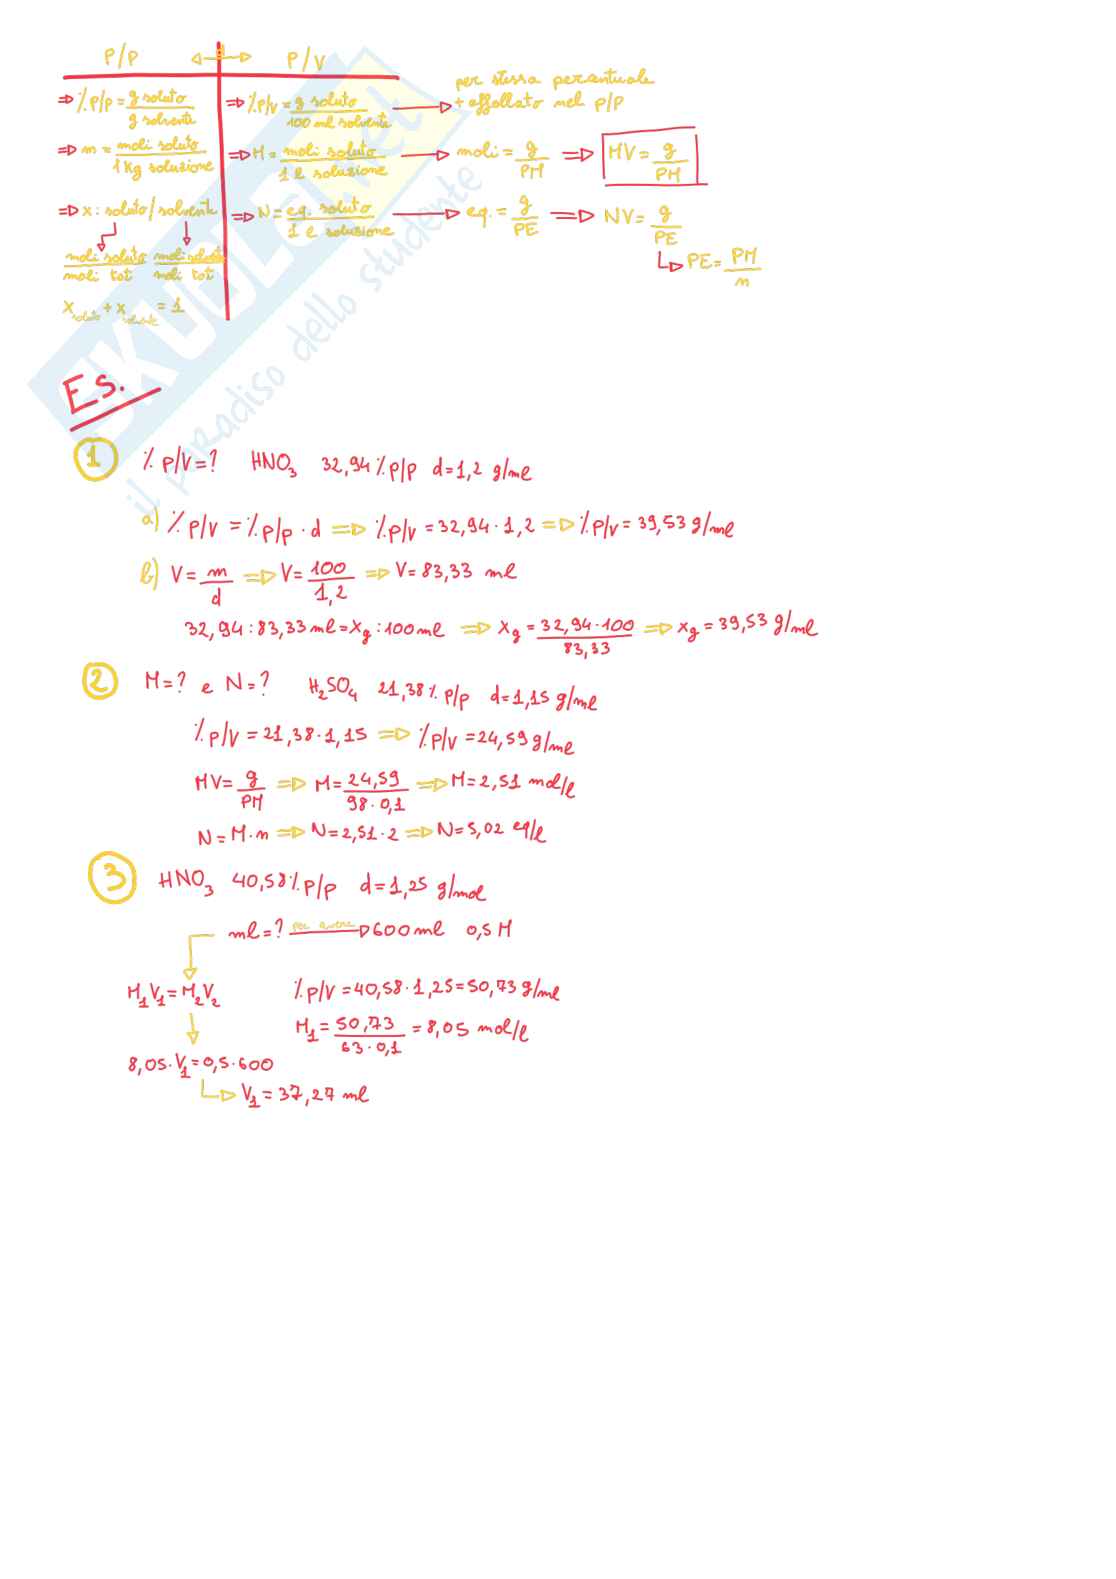 P/P d P/V
⇒ % P/P = g soluto / g solvente
⇒ m = moli soluto / 1 Kg soluzione
⇒ x : soluto / solvente
moli soluto / moli tot moli solvente / moli tot
X soluto + X solvente = 1
⇒ % P/V = g soluto / 100 ml solvente → per stessa percentuale
+ affollato nel P/P
⇒ M = moli soluto / 1 l soluzione → moli = g / PM ⇒ MV = g / PM
⇒ N = eq. soluto / 1 l soluzione → eq. = g / PE ⇒ NV = g / PE
↳ PE = PM / n
SKUOLA.net
il paradiso dello studente
Es.
1 % P/V = ? HNO₃ 32,94 % P/P d = 1,2 g/ml
a) % P/V = % P/P · d ⇒ % P/V = 32,94 · 1,2 ⇒ % P/V = 39,53 g/ml
b) V = m / d ⇒ V = 100 / 1,2 ⇒ V = 83,33 ml
32,94 : 83,33 ml = Xg : 100 ml ⇒ Xg = 32,94 · 100 / 83,33 ⇒ Xg = 39,53 g/ml
2 M = ? e N = ? H₂SO₄ 21,38 % P/P d = 1,15 g/ml
% P/V = 21,38 · 1,15 ⇒ % P/V = 24,59 g/ml
MV = g / PM ⇒ M = 24,59 / 98 · 0,1 ⇒ M = 2,51 mol/l
N = M · n ⇒ N = 2,51 · 2 ⇒ N = 5,02 eq/l
3 HNO₃ 40,58 % P/P d = 1,25 g/mol
ml = ? per avere → 600 ml 0,5 M
M₁V₁ = M₂V₂
% P/V = 40,58 · 1,25 = 50,73 g/ml
M₁ = 50,73 / 63 · 0,1 = 8,05 mol/l
8,05 · V₁ = 0,5 · 600
↳ V₁ = 37,27 ml